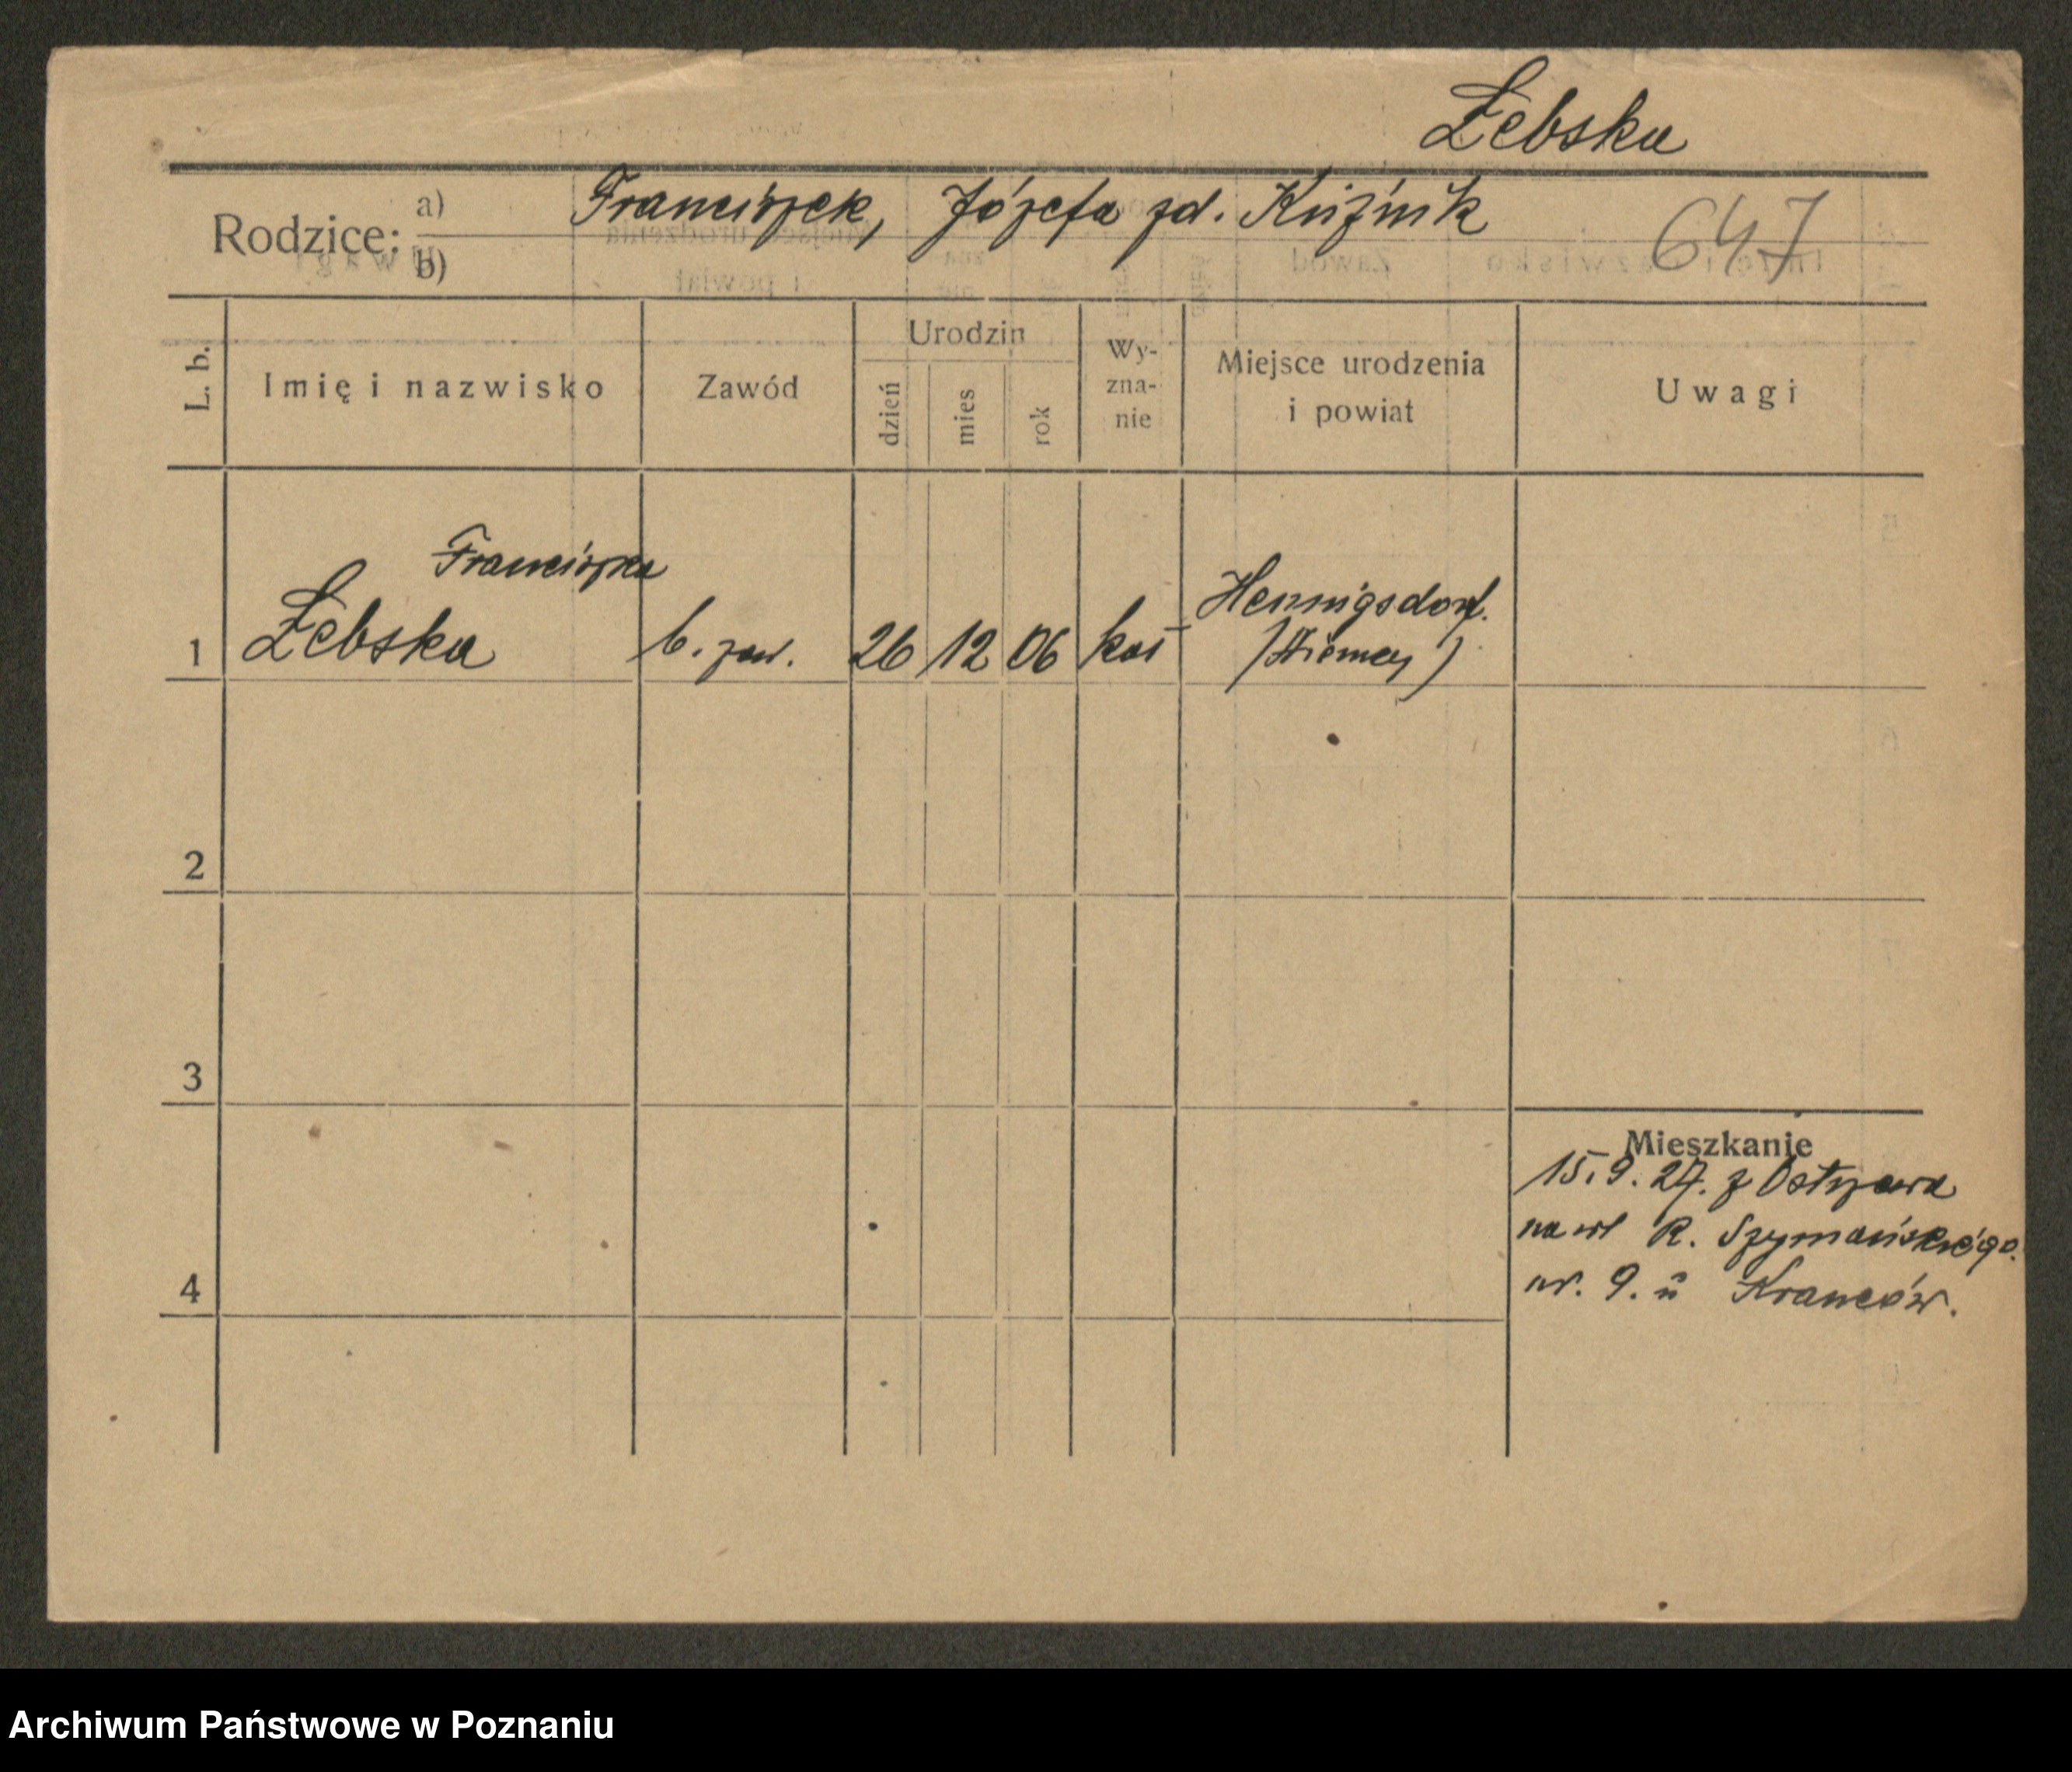 Łebska
Rodzice: a) Franciszek, Józefa zd. Kuźnik
b)
647
L. b.
Imię i nazwisko
Zawód
Urodzin
dzień
mies
rok
Wy-
zna-
nie
Miejsce urodzenia
i powiat
Uwagi
Franciszka
1 Łebska b. zaw. 26 12 06 kat Hennigsdorf.
/Niemcy/
2
3
4
Mieszkanie
15.9.27. z
na ul R. Szymańskiego.
nr. 9. u
Archiwum Państwowe w Poznaniu